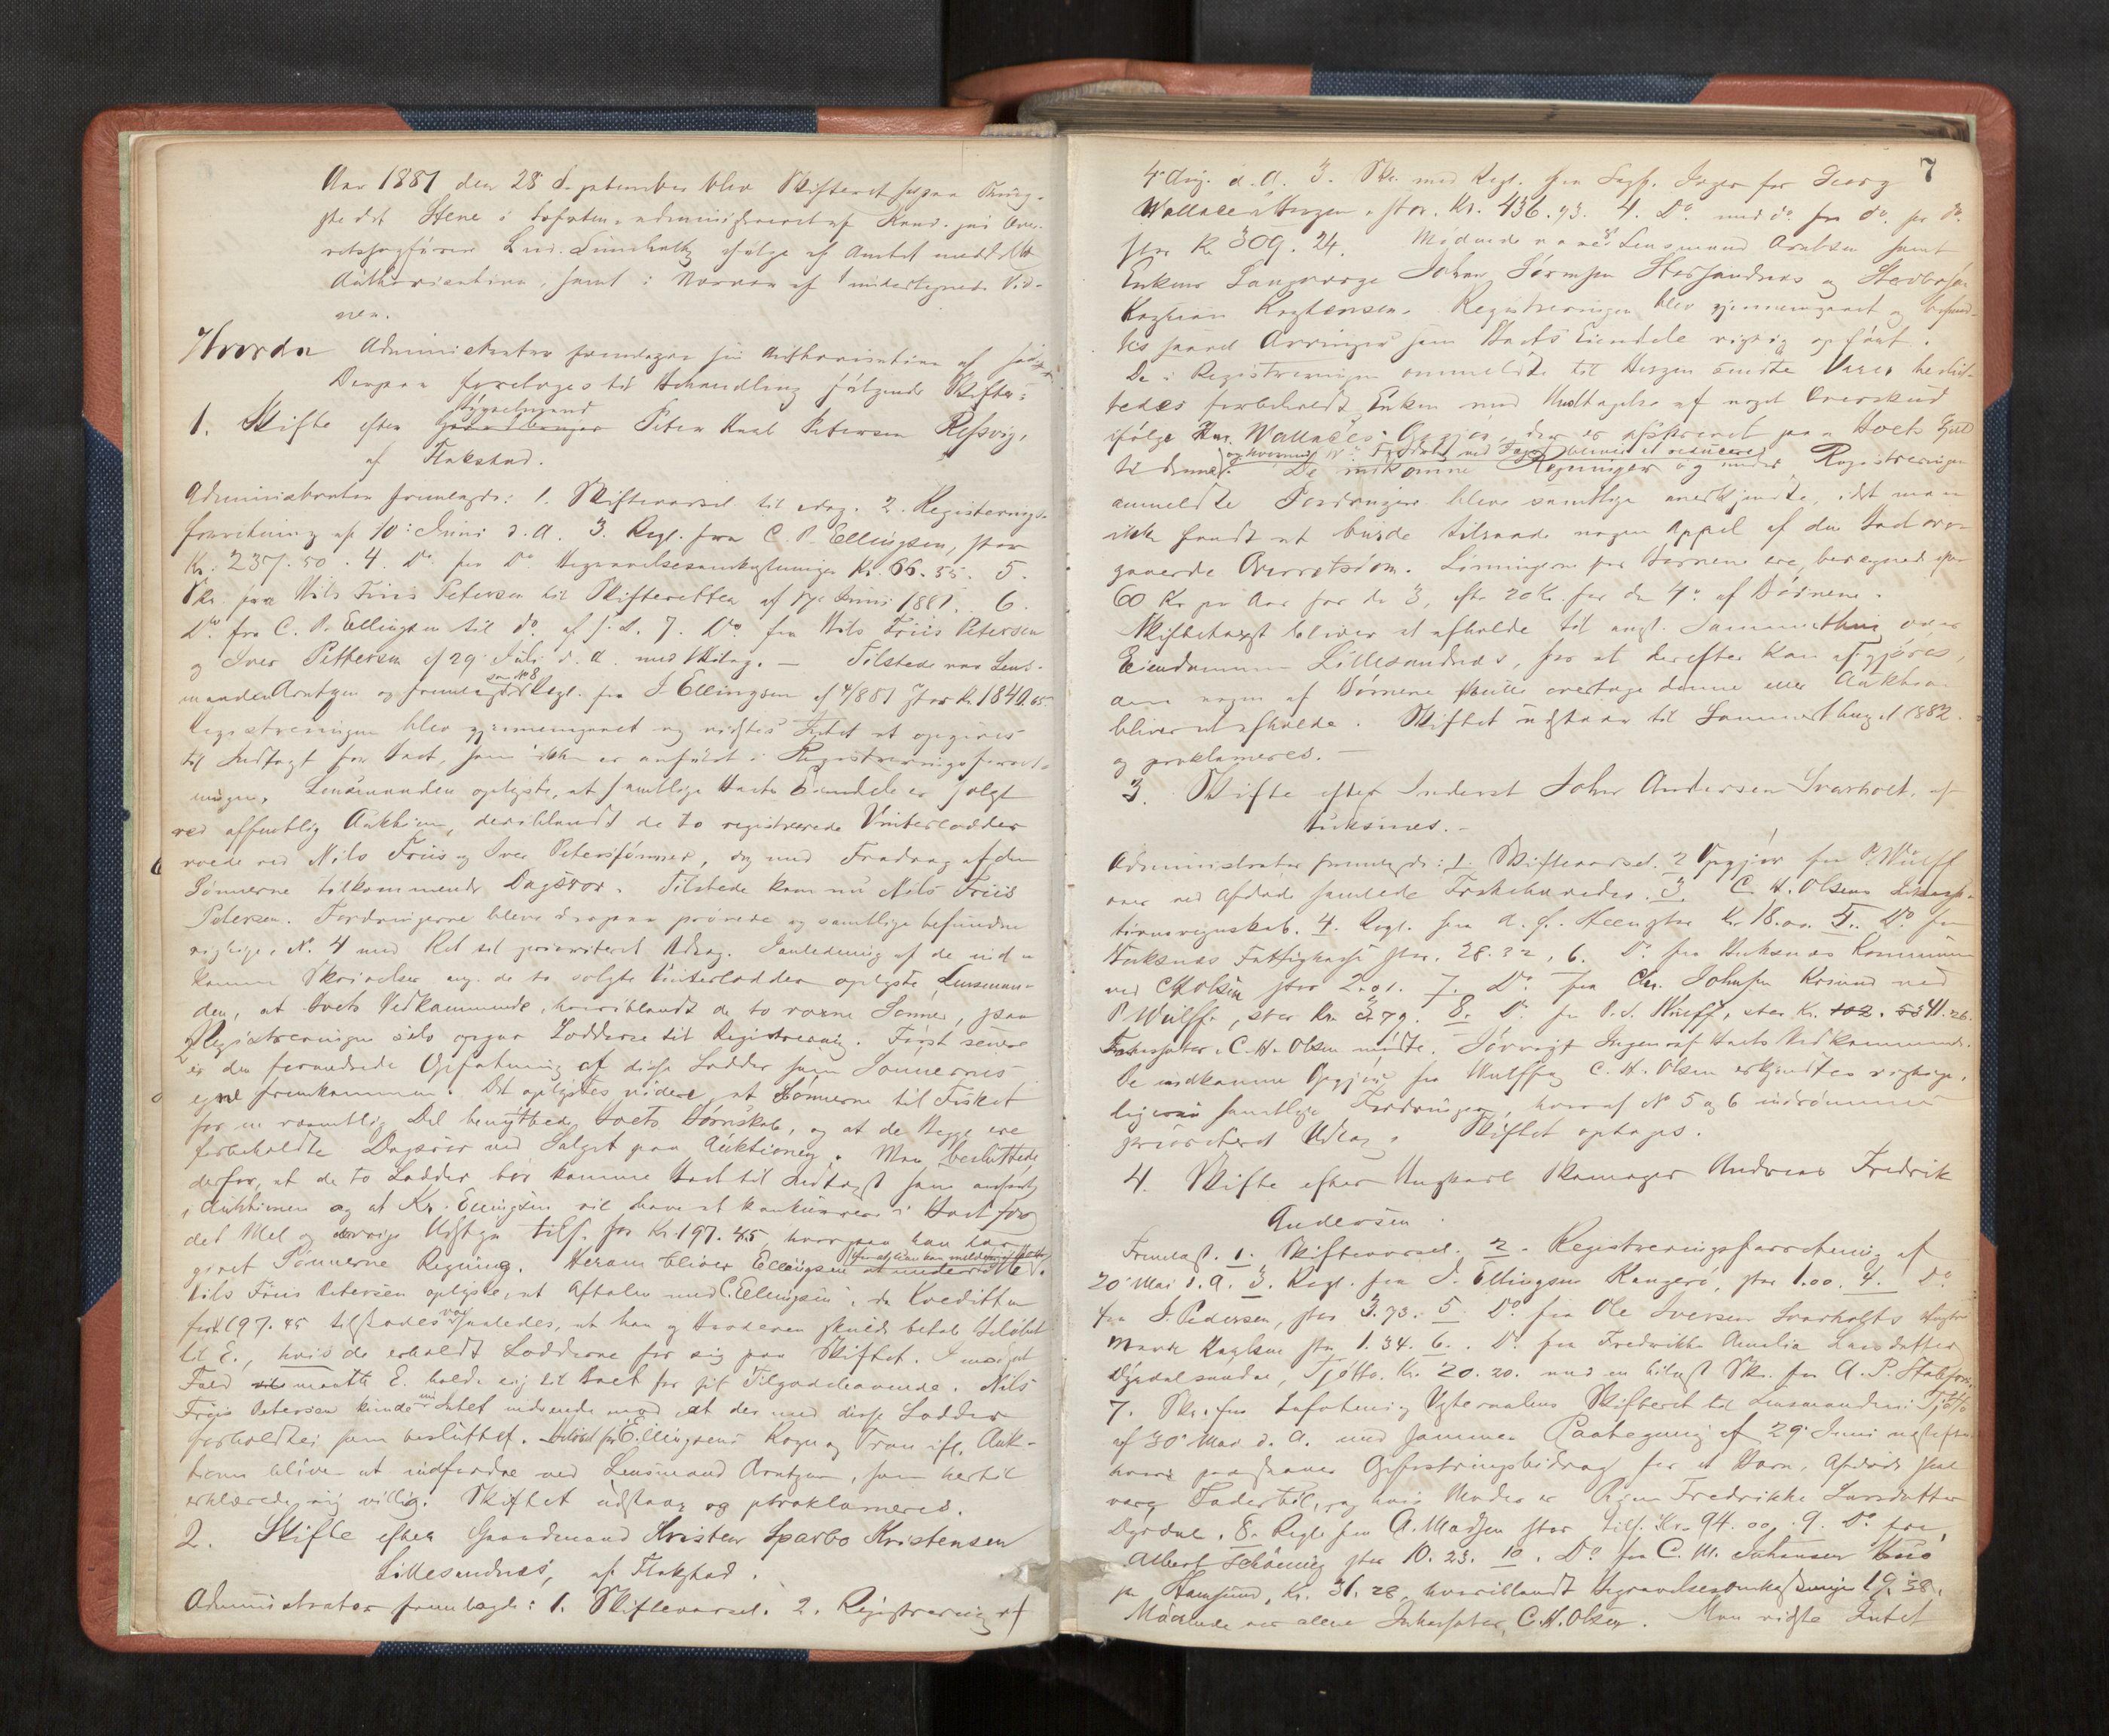 Aar 1881 den 28 September blev Skifteret sat paa Thing-
stedet Stene i Lofoten, administreret af Kand. jur. Over-
retssagfører Lind ifølge af Amtet meddelt
Authorisation, samt i Nærvær af undertegnede Vid-
ner.
Hvorda Administrator fremlagde sin Authorisation af
Derpaa foretoges til Behandling følgende Skifter:
1. Skifte efter Gaardbruger Peter Petersen Resvig,
af Flakstad.
Administrator fremlagde: 1. Skiftevarsel til idag. 2. Registrerings-
forretning af 10' Juni d. A. 3. Regl. fra C. P. Ellingsen, stor
Kr. 237.50. 4. Do fra Do Begravelsesomkostninger Kr. 66.55. 5.
Skr. fra Nils Friis Petersen til Skifteretten af Juni 1881. 6.
Do fra C. P. Ellingsen til do af s. D. 7. Do fra Nils Friis Petersen
og Iver Pettersen af 29' Juli d. A. med Bilag. — Tilstede var Lens-
manden Arntzen og fremlagde som No 8 Regl. fra J. Ellingsen af 4/881 stor Kr. 1840.65
Registreringen blev gjennemgaaet og vidstes Intet at opgives
til Indtægt for Boet, som ikke er anført i Registreringsforret-
ningen. Lensmanden oplyste, at samtlige Boets Eiendele er solgt
ved offentlig Auktion, deriblandt de to registrerede Vinterlodder
roede ved Nils Friis og Iver Peterssønner, dog med Fradrag af den
Sønnerne tilkommende Dagsror. Tilstede kom nu Nils Friis
Petersen. Fordringerne bleve derpaa prøvede og samtlige befundne
rigtige, No 4 med Ret til prioriteret Udlæg. I Anledning af de ind-
komne Skrivelser ang. de to solgte Vinterlodder oplyste Lensman-
den, at Boets Vedkommende, hvoriblandt de to voxne Sønner, paa
Registreringen selv opgav Lodderne til Registrering. Først senere
er den forandrede Opfatning af disse Lodder som Sønnernes
egne fremkommen. Det oplystes videre, at Sønnerne til Fisket
for en væsentlig Del benyttede Boets Børnskab, og at de Begge ere
forbeholdte Dagsror ved Salget paa Auktionen. Man besluttede
derfor, at de to Lodder bør komme Boet til Indtægt som anført
i Auktionen og at Kr. Ellingsen vil have at konkurrere i Boet for
det Mel og øvrige Udstyr tils. for Kr. 197.45, hvorpaa han har
givet Sønnerne Regning. Herom bliver Ellingsen at underrette.
Nils Friis Petersen oplyste, at Aftalen med C. Ellingsen, da Kreditten
for 197.45 tilstodes var saaledes, at han og Broderen skulde betale Beløbet
til E., hvis de erholdt Lodderne for sig paa Skiftet. I modsat
Fald maatte E. holde sig til Boet for sit Tilgodehavende. Nils
Friis Petersen kunde Intet indvende mod at der med disse Lodder
forholdtes som besluttet. Beløbet for Ellingsens Rogn og Tran ifl. Auk-
tionen bliver at indfordre ved Lensmand Arntzen, som hertil
erklærede sig villig. Skiftet udstaar og proklameres.
2. Skifte efter Gaardmand Kristen Sparbo Kristensen
Lillesandnes, af Flakstad.
Administrator fremlagde: 1. Skiftevarsel. 2. Registrering af
7
4' Aug. d. A. 3. Skr. med Regl. fra Sagf. Jæger for Georg
Wallace i Bergen, stor Kr. 436.93. 4. Do med do fra do for do
stor Kr 309.24. Mødende var Lensmand Arntzen samt
Enkens Laugværge Johan Storsandnes og Stedbroder
Kristian Kristensen. Registreringen blev gjennemgaaet og befand-
tes saavel Arvinger som Boets Eiendele rigtig opført.
De i Registreringen ommeldte til Bergen sendte Varer beslut-
tedes forbeholdt Enken med Undtagelse af noget Overskud
ifølge Hr. Wallaces Opgjør, der er afskrevet paa Boets Gjeld
til denne. De indkomne Regninger og under Registreringen
anmeldte Fordringer bleve samtlige anerkjendte, idet man
ikke fandt at burde tilraade nogen Appel af den
gaaende Overretsdom. Lønningerne for Børnene ere beregnede efter
60 Kr pr Aar for de 3, efter 20 Kr. for den 4' af Børnene.
Skiftetaxt bliver at afholde til næst. Sommerthing over
Eiendommen Lillesandnes, for at derefter kan afgjøres,
om nogen af Børnene skulle overtage denne eller Auktion
bliver at afholde. Skiftet udstaar til Sommerthinget 1882
og proklameres. —
3. Skifte efter Inderst Johan Andersen Svarholt, af
Buksnes. —
Administrator fremlagde: 1. Skiftevarsel. 2. Opgjør fra P. Wulff
over ved Afdøde samlede Fiskebrueder. 3. C. H. Olsens
tionsregnskab. 4. Regl. fra Kr. 18.00. 5. Do fra
Buksnes Fattigkasse stor 28.32, 6. Do fra Buksnes Kommune
ved C. H. Olsen stor 2.01. 7. Do fra Chr. Johnsen Risund ved
P. Wulff, stor Kr. 3.79. 8. Do fra P. S. Wulff, stor Kr. 102.53 41.26.
Inkassator C. H. Olsen mødte. Iøvrigt Ingen af Boets Vedkommende.
De indkomne Opgjør fra Wulff og C. H. Olsen erkjendtes rigtige,
ligesaa samtlige Fordringer, hvoraf No 5 og 6 indrømmes
prioriteret Udlæg. Skiftet optages.
4. Skifte efter Ungkarl Skomager Andreas Fredrik
Andersen.
Fremlagt. 1. Skiftevarsel. 2. Registreringsforretning af
20' Mai d. A. 3. Regl. fra J. Ellingsen Rangerø, stor 1.00. 4. Do
fra J. Pedersen, stor 3.73. 5. Do fra Ole Iversen Svarholts
Marie Karlsen stor 1.34. 6. Do fra Fredrikke Amalia Larsdatter
Dyrdalsandnes, Tjøtto. Kr. 20.20. med en bilagt Skr. fra A. P.
7. Skr. fra Lofoten og Vesteraalens Skifteret til Lensmanden i Tjøtto
af 30' Mai d. A. med sammes Paategning af 29' Juni næstefter
hvori paastaaes Opfostringsbidrag for et Barn, Afdøde skal
være Fader til, og hvis Moder er Pigen Fredrikke Larsdatter
Dyrdal. 8. Regl. fra A. Madsen stor tils. Kr. 94.00. 9. Do fra
Albert Schøning stor 10.23. 10. Do fra C. M. Johansen
pr Hamsund, Kr. 31.28, hvoriblandt Begravelsesomkostninger 19.38.
Mødende var alene Inkassator C. H. Olsen. Man vidste Intet